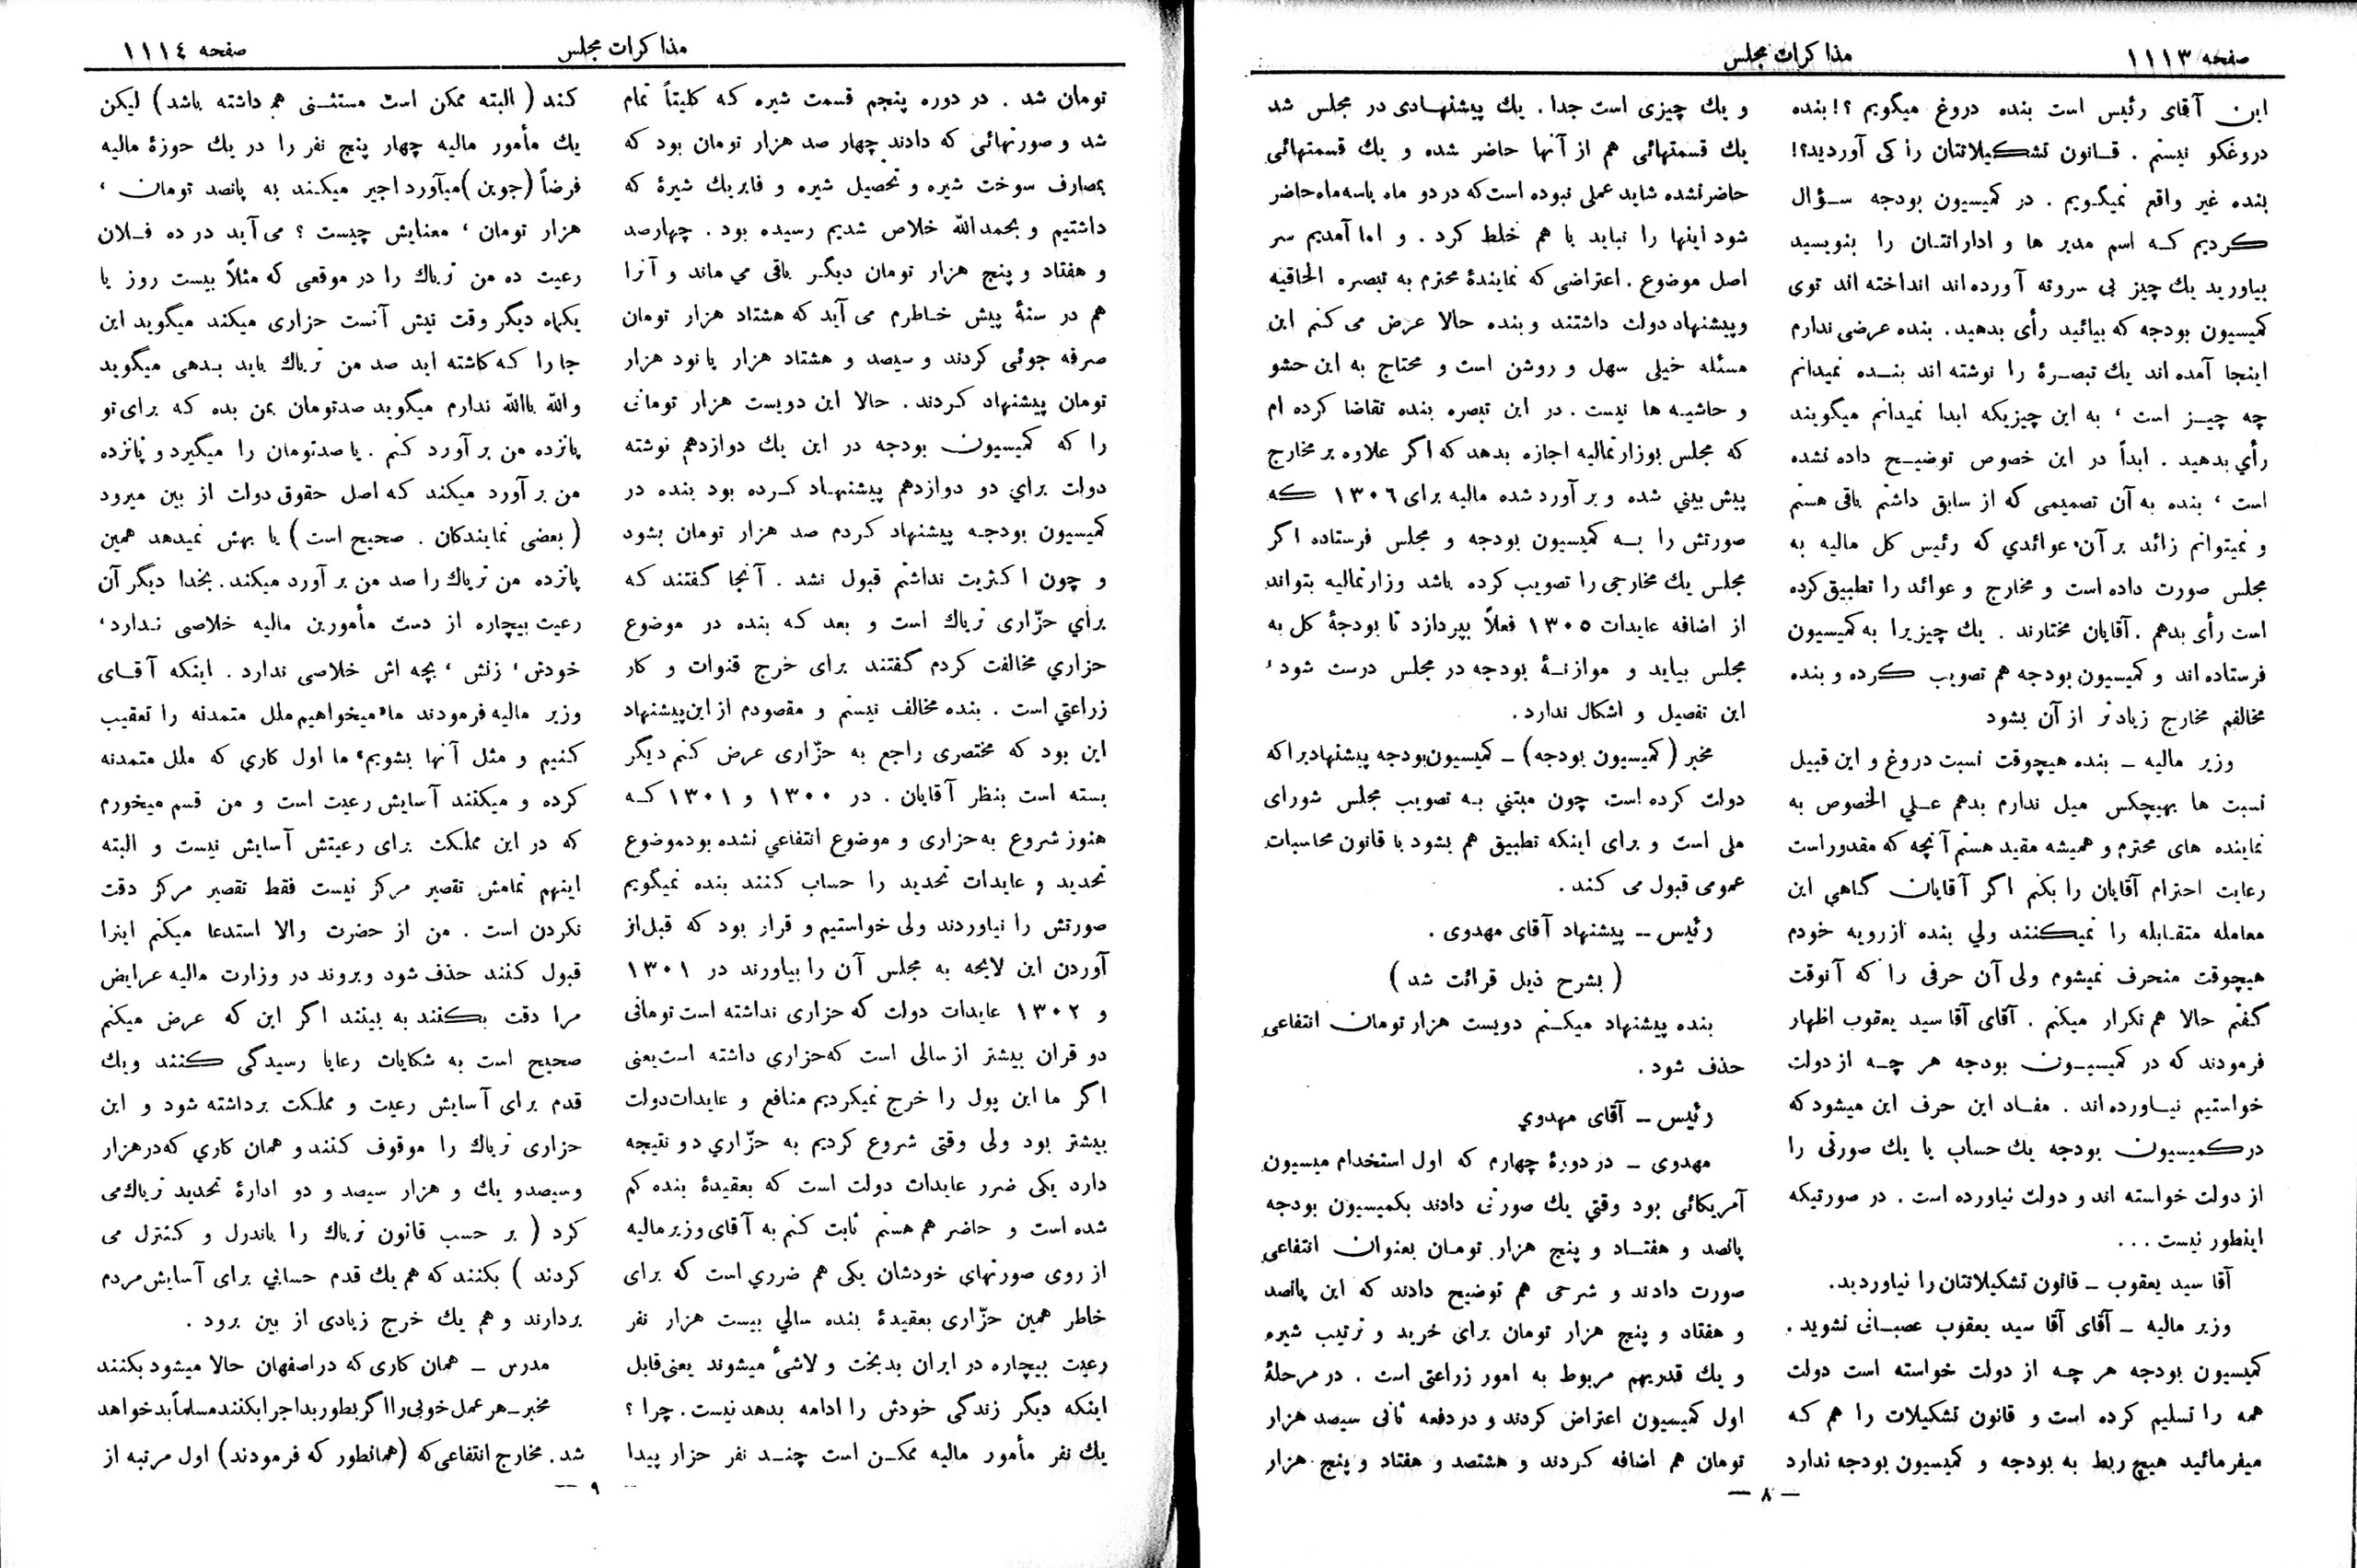 صفحه ۱۱۱۳
مذاکرات مجلس
این آقای رئیس است بنده دروغ میگویم ؟! بنده
دروغگو نیستم . قانون تشکیلاتتان را کی آوردید؟!
بنده غیر واقع نمیگویم . در کمیسیون بودجه سؤال
کردیم که اسم مدیر ها و اداراتتان را بنویسید
بیاورید یك چیز بی سروته آورده‌اند انداخته اند توی
کمیسیون بودجه که بیائید رأی بدهید. بنده عرضی ندارم
اینجا آمده اند یك تبصرهٔ را نوشته اند بنده نمیدانم
چه چیز است ، به این چیزیکه ابدا نمیدانم میگویند
رأی بدهید . ابداً در این خصوص توضیح داده نشده
است ، بنده به آن تصمیمی که از سابق داشتم باقی هستم
و نمیتوانم زائد بر آن عوائدی که رئیس کل مالیه به
مجلس صورت داده است و مخارج و عوائد را تطبیق کرده
است رأی بدهم . آقایان مختارند . یك چیزیرا به کمیسیون
فرستاده اند و کمیسیون بودجه هم تصویب کرده و بنده
مخالفم مخارج زیادتر از آن بشود
وزیر مالیه ـ بنده هیچوقت نسبت دروغ و این قبیل
نسبت ها بهیچکس میل ندارم بدهم علی الخصوص به
نماینده های محترم و همیشه مقید هستم آنچه که مقدور است
رعایت احترام آقایان را بکنم اگر آقایان گاهی این
معامله متقابله را نمیکنند ولی بنده از رویه خودم
هیچوقت منحرف نمیشوم ولی آن حرفی را که آنوقت
گفتم حالا هم تکرار میکنم . آقای آقا سید یعقوب اظهار
فرمودند که در کمیسیون بودجه هر چه از دولت
خواستیم نیاورده‌اند . مفاد این حرف این میشود که
در کمیسیون بودجه یك حساب یا یك صورتی را
از دولت خواسته اند و دولت نیاورده است . در صورتیکه
اینطور نیست ...
آقا سید یعقوب ـ قانون تشکیلاتتان را نیاوردید.
وزیر مالیه ـ آقای آقا سید یعقوب عصبانی نشوید .
کمیسیون بودجه هر چه از دولت خواسته است دولت
همه را تسلیم کرده است و قانون تشکیلات را هم که
میفرمائید هیچ ربط به بودجه و کمیسیون بودجه ندارد
و یك چیزی است جدا . یك پیشنهادی در مجلس شد
یك قسمتهائی هم از آنها حاضر شده و یك قسمتهائی
حاضر نشده شاید عملی نبوده است که در دو ماه یا سه ماه حاضر
شود اینها را نباید با هم خلط کرد . و اما آمدیم سر
اصل موضوع . اعتراضی که نمایندهٔ محترم به تبصره الحاقیه
وپیشنهاد دولت داشتند وبنده حالا عرض می کنم این
مسئله خیلی سهل و روشن است و محتاج به این حشو
و حاشیه ها نیست . در این تبصره بنده تقاضا کرده ام
که مجلس بوزارتمالیه اجازه بدهد که اگر علاوه بر مخارج
پیش بینی شده و بر آورد شده مالیه برای ۱۳۰۶ که
صورتش را به کمیسیون بودجه و مجلس فرستاده اگر
مجلس یك مخارجی را تصویب کرده باشد وزارتمالیه بتواند
از اضافه عایدات ۱۳۰۵ فعلاً بپردازد تا بودجهٔ کل به
مجلس بیاید و موازنهٔ بودجه در مجلس درست شود ،
این تفصیل و اشکال ندارد .
مخبر (کمیسیون بودجه) ـ کمیسیون بودجه پیشنهادیرا که
دولت کرده است چون مبتنی به تصویب مجلس شورای
ملی است و برای اینکه تطبیق هم بشود با قانون محاسبات
عمومی قبول می کند .
رئیس ـ پیشنهاد آقای مهدوی .
( بشرح ذیل قرائت شد )
بنده پیشنهاد میکنم دویست هزار تومان انتفاعی
حذف شود .
رئیس ـ آقای مهدوی
مهدوی ـ در دورهٔ چهارم که اول استخدام میسیون
آمریکائی بود وقتی یك صورتی دادند بکمیسیون بودجه
پانصد و هفتاد و پنج هزار تومان بعنوان انتفاعی
صورت دادند و شرحی هم توضیح دادند که این پانصد
و هفتاد و پنج هزار تومان برای خرید و ترتیب شیره
و یك قدریهم مربوط به امور زراعتی است . در مرحلهٔ
اول کمیسیون اعتراض کردند و در دفعه ثانی سیصد هزار
تومان هم اضافه کردند و هشتصد و هفتاد و پنج هزار
ـ ۸ ـ
مذاکرات مجلس
صفحه ۱۱۱٤
تومان شد . در دوره پنجم قسمت شیره که کلیتاً تمام
شد و صورتهائی که دادند چهار صد هزار تومان بود که
بمصارف سوخت شیره و تحصیل شیره و فابریك شیرهٔ که
داشتیم و بحمدالله خلاص شدیم رسیده بود . چهارصد
و هفتاد و پنج هزار تومان دیگر باقی می ماند و آنرا
هم در سنهٔ پیش خاطرم می آید که هشتاد هزار تومان
صرفه جوئی کردند و سیصد و هشتاد هزار یا نود هزار
تومان پیشنهاد کردند . حالا این دویست هزار تومانی
را که کمیسیون بودجه در این یك دوازدهم نوشته
دولت برای دو دوازدهم پیشنهاد کرده بود بنده در
کمیسیون بودجه پیشنهاد کردم صد هزار تومان بشود
و چون اکثریت نداشتم قبول نشد . آنجا گفتند که
برای حزّاری تریاك است و بعد که بنده در موضوع
حزاری مخالفت کردم گفتند برای خرج قنوات و کار
زراعتی است . بنده مخالف نیستم و مقصودم از این پیشنهاد
این بود که مختصری راجع به حزّاری عرض کنم دیگر
بسته است بنظر آقایان . در ۱۳۰۰ و ۱۳۰۱ که
هنوز شروع به حزاری و موضوع انتفاعی نشده بود موضوع
تحدید و عایدات تحدید را حساب کنند بنده نمیگویم
صورتش را نیاوردند ولی خواستیم و قرار بود که قبل از
آوردن این لایحه به مجلس آن را بیاورند در ۱۳۰۱
و ۱۳۰۲ عایدات دولت که حزاری نداشته است تومانی
دو قران بیشتر از سالی است که حزاری داشته است یعنی
اگر ما این پول را خرج نمیکردیم منافع و عایدات دولت
بیشتر بود ولی وقتی شروع کردیم به حزّاری دو نتیجه
دارد یکی ضرر عایدات دولت است که بعقیدهٔ بنده کم
شده است و حاضر هم هستم ثابت کنم به آقای وزیر مالیه
از روی صورتهای خودشان یکی هم ضرری است که برای
خاطر همین حزّاری بعقیدهٔ بنده سالی بیست هزار نفر
رعیت بیچاره در ایران بدبخت و لاشیٔ میشوند یعنی قابل
اینکه دیگر زندگی خودش را ادامه بدهد نیست . چرا ؟
یك نفر مأمور مالیه ممکن است چند نفر حزار پیدا
کند ( البته ممکن است مستثنی هم داشته باشد ) لیکن
یك مأمور مالیه چهار پنج نفر را در یك حوزهٔ مالیه
فرضاً (جوین) میآورد اجیر میکند به پانصد تومان ،
هزار تومان ، معنایش چیست ؟ می آید در ده فلان
رعیت ده من تریاك را در موقعی که مثلاً بیست روز یا
یکماه دیگر وقت تیش آنست حزاری میکند میگوید این
جا را که کاشته اید صد من تریاك باید بدهی میگوید
والله بالله ندارم میگوید صد تومان بمن بده که برای تو
پانزده من بر آورد کنم . یا صد تومان را میگیرد و پانزده
من بر آورد میکند که اصل حقوق دولت از بین میرود
( بعضی نمایندگان . صحیح است ) یا بهش نمیدهد همین
پانزده من تریاك را صد من بر آورد میکند . بخدا دیگر آن
رعیت بیچاره از دست مأمورین مالیه خلاصی ندارد ،
خودش ، زنش ، بچه اش خلاصی ندارد . اینکه آقای
وزیر مالیه فرمودند ما میخواهیم ملل متمدنه را تعقیب
کنیم و مثل آنها بشویم ، ما اول کاری که ملل متمدنه
کرده و میکنند آسایش رعیت است و من قسم میخورم
که در این مملکت برای رعیتش آسایش نیست و البته
اینهم تمامش تقصیر مرکز نیست فقط تقصیر مرکز دقت
نکردن است . من از حضرت والا استدعا میکنم اینرا
قبول کنند حذف شود و بروند در وزارت مالیه عرایض
مرا دقت بکنند به بینند اگر این که عرض میکنم
صحیح است به شکایات رعایا رسیدگی کنند ویك
قدم برای آسایش رعیت و مملکت برداشته شود و این
حزاری تریاك را موقوف کنند و همان کاری که در هزار
وسیصد و یك و هزار سیصد و دو ادارهٔ تحدید تریاك می
کرد ( بر حسب قانون تریاك را باندرل و کنترل می
کردند ) بکنند که هم یك قدم حسابی برای آسایش مردم
بردارند و هم یك خرج زیادی از بین برود .
مدرس ـ همان کاری که در اصفهان حالا میشود بکنند
مخبر ـ هر عمل خوبی را اگر بطور بد اجرا بکنند مسلماً بد خواهد
شد . مخارج انتفاعی که (همانطور که فرمودند) اول مرتبه از
ـ ۹ ـ